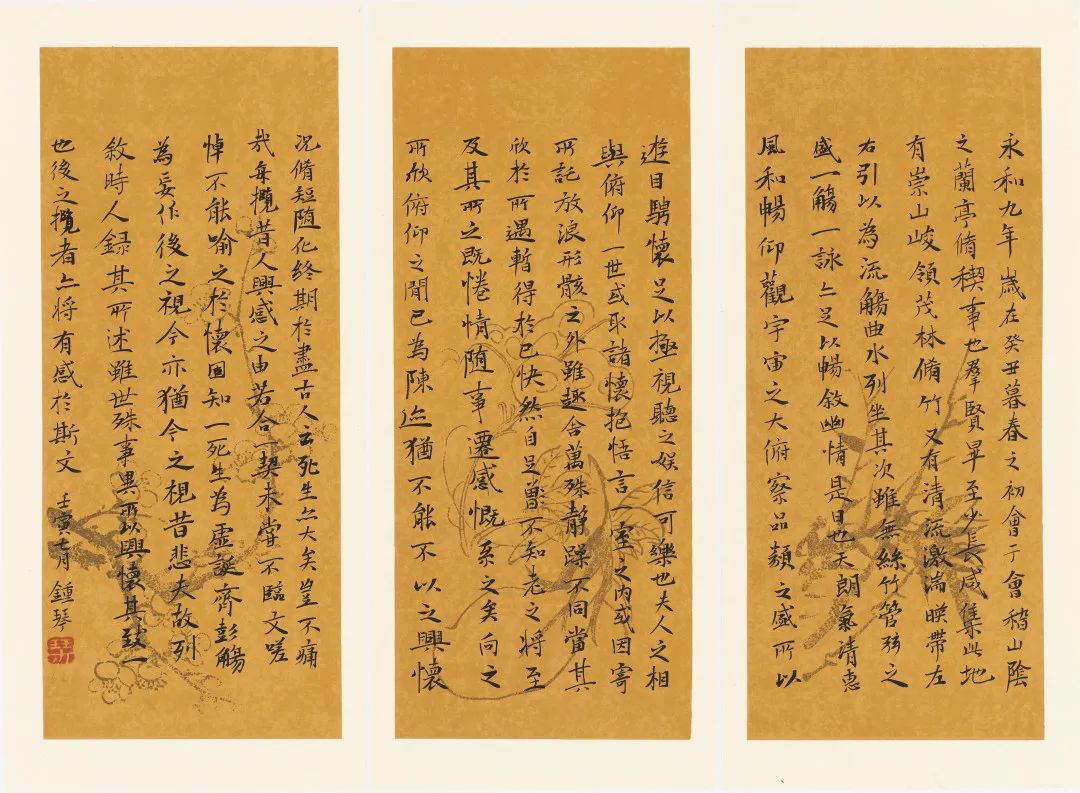 永和九年歲在癸丑暮春之初會于會稽山陰
之蘭亭脩稧事也羣賢畢至少長咸集此地
有崇山峻領茂林脩竹又有清流激湍暎帶左
右引以為流觴曲水列坐其次雖無絲竹管弦之
盛一觴一詠亦足以暢敘幽情是日也天朗氣清惠
風和暢仰觀宇宙之大俯察品類之盛所以
遊目騁懷足以極視聽之娛信可樂也夫人之相
與俯仰一世或取諸懷抱悟言一室之內或因寄
所託放浪形骸之外雖趣舍萬殊靜躁不同當其
欣於所遇暫得於己快然自足曾不知老之將至
及其所之既惓情随事遷感慨系之矣向之
所欣俯仰之閒已為陳迹猶不能不以之興懷
況脩短随化終期於盡古人云死生亦大矣豈不痛
哉每攬昔人興感之由若合一契未嘗不臨文嗟
悼不能喻之於懷固知一死生為虛誕齊彭觴
為妄作後之視今亦猶今之視昔悲夫故列
敘時人録其所述雖世殊事異所以興懷其致一
也後之攬者亦將有感於斯文 壬寅七月鍾琴
琴